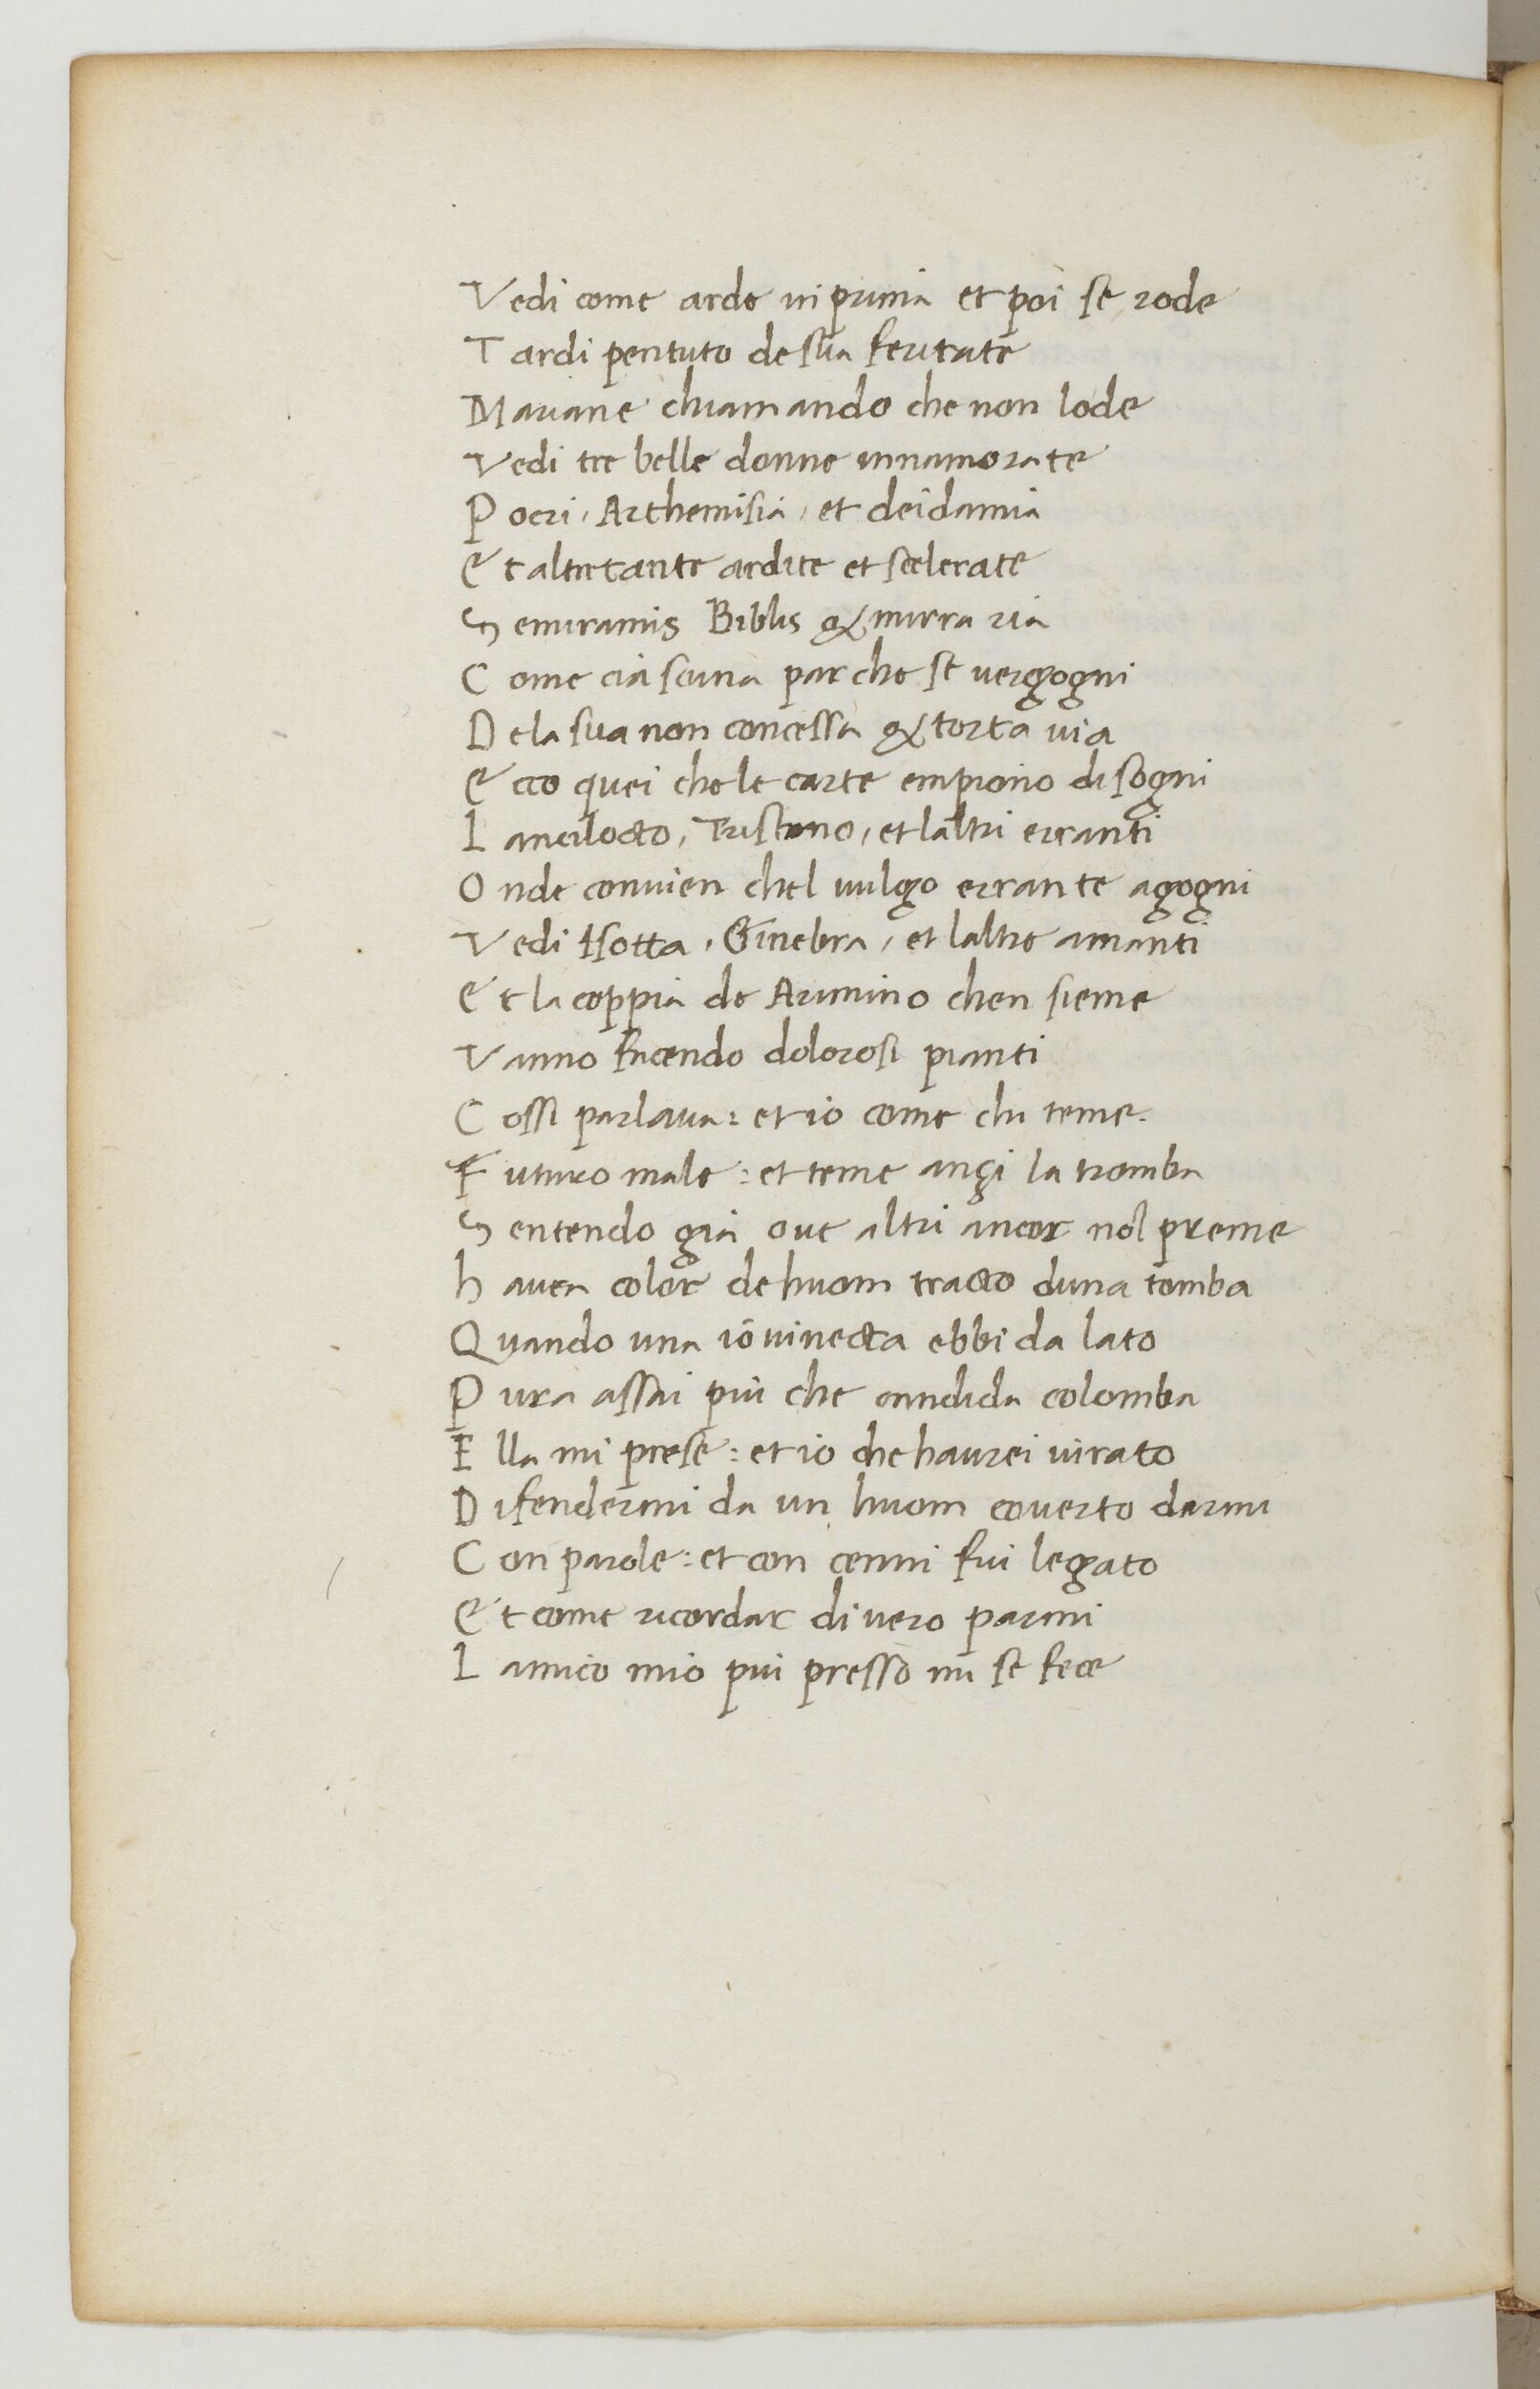 Vedi come arde in prima et poi se rode
Tardi pentuto de sua feritate
Mariane chiamando che non lode
Vedi tre belle donne innamorate
Pocri, Arthemisia, et deidamia
Et altretante ardite et scelerate
Semiramis Biblis & mirra ria
Come ciascuna par che se vergogni
De la sua non concessa & torta via
Ecco quei che le carte empiono di sogni
Lancilocto, Tristano, et laltri erranti
Onde convien chel vulgo errante agogni
Vedi Isotta, Ginebra, et laltre amanti
Et la coppia de Arimino chen sieme
Vanno facendo dolorosi pianti
Cossi parlava: et io come chi teme.
Futuro male: et teme ançi la tromba
Sentendo gia ove altri ancor nol preme
havea color de huom tracto duna tomba
Quando una iovinecta ebbi da lato
Pura assai piu che candida colomba
Ella mi prese: et io che haurei iurato
Difendermi da un huom coverto darmi
Con parole: et con cenni fui legato
Et come ricordar di vero parmi
Lamico mio piu presso mi se fece